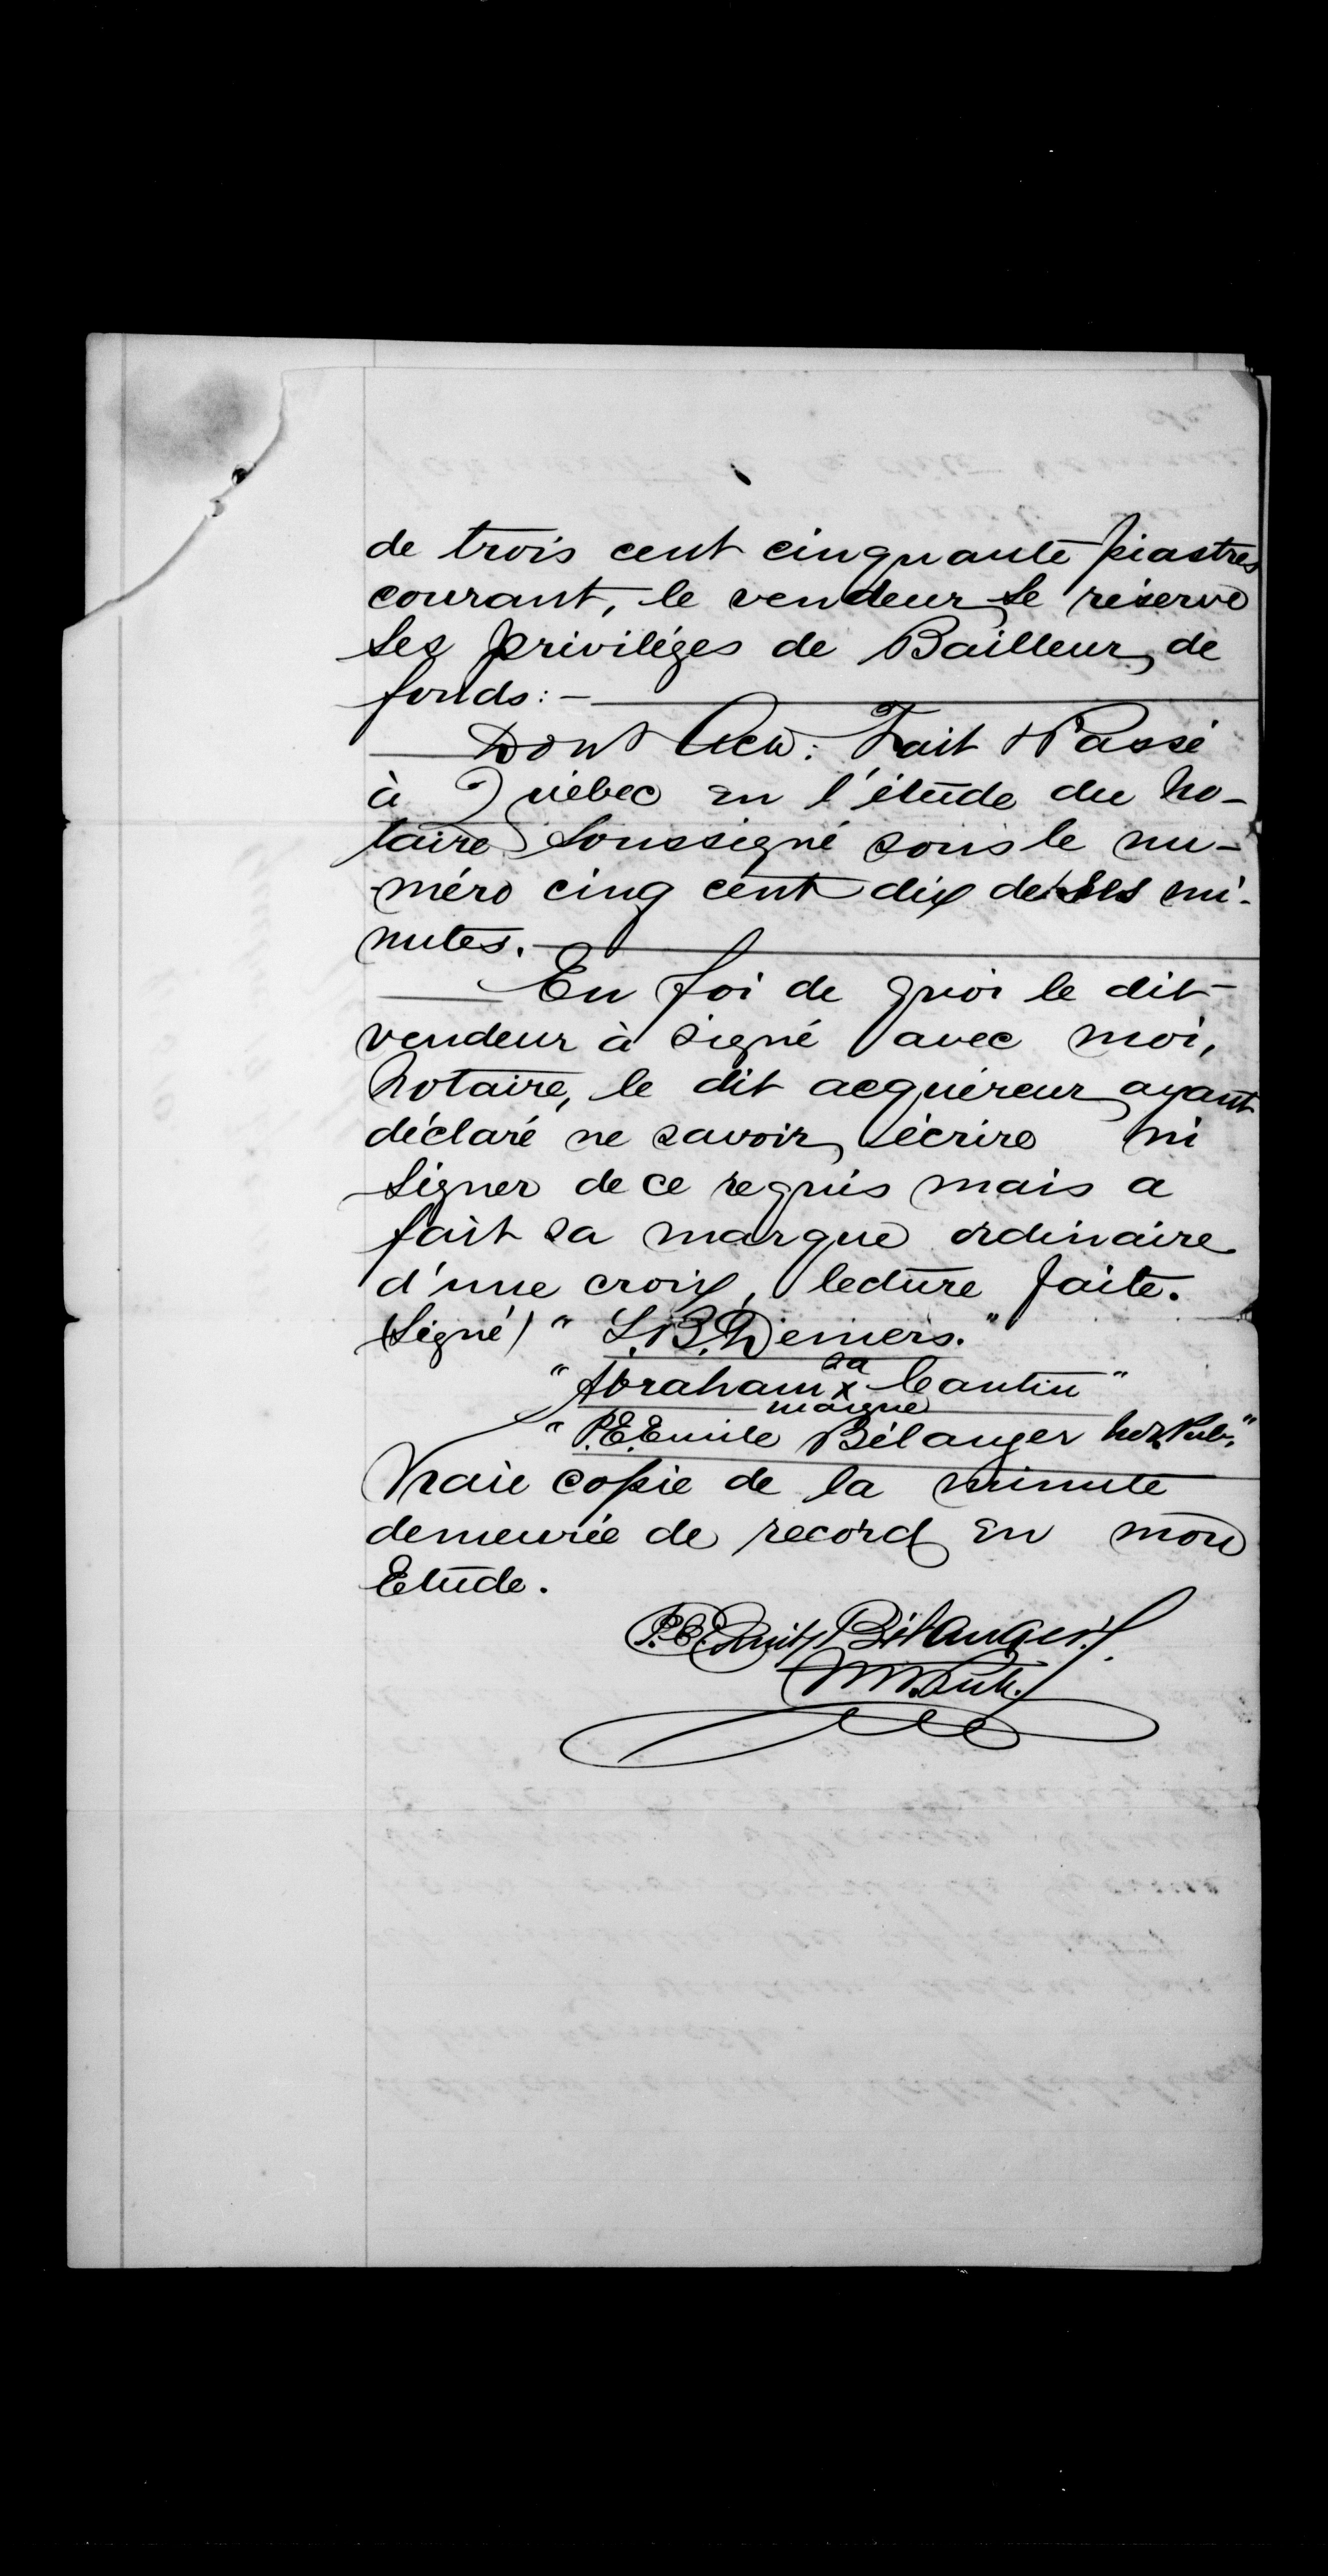 de trois cent cinquante piastres
courant, le vendeur se réserve
ses priviléges de Bailleur de
fonds: —
Dont Acte: Fait & Passé
à Québec en l'étude du no-
taire soussigné sous le nu-
méro cinq cent dix de ses mi-
nutes.
En foi de quoi le dit
vendeur à signé avec moi,
Notaire, le dit acquéreur ayant
déclaré ne savoir écrire ni
signer de ce requis mais a
fait sa marque ordinaire
d'une croix, lecture faite.
(Signé) " L.B. Demers."
sa
" Abraham x Cantin "
marque
" P.E. Emile Bélanger Not. Pub."
Vraie copie de la minute
demeurée de record en mon
Etude.
P.E. Emile Bélanger
N. Pub.